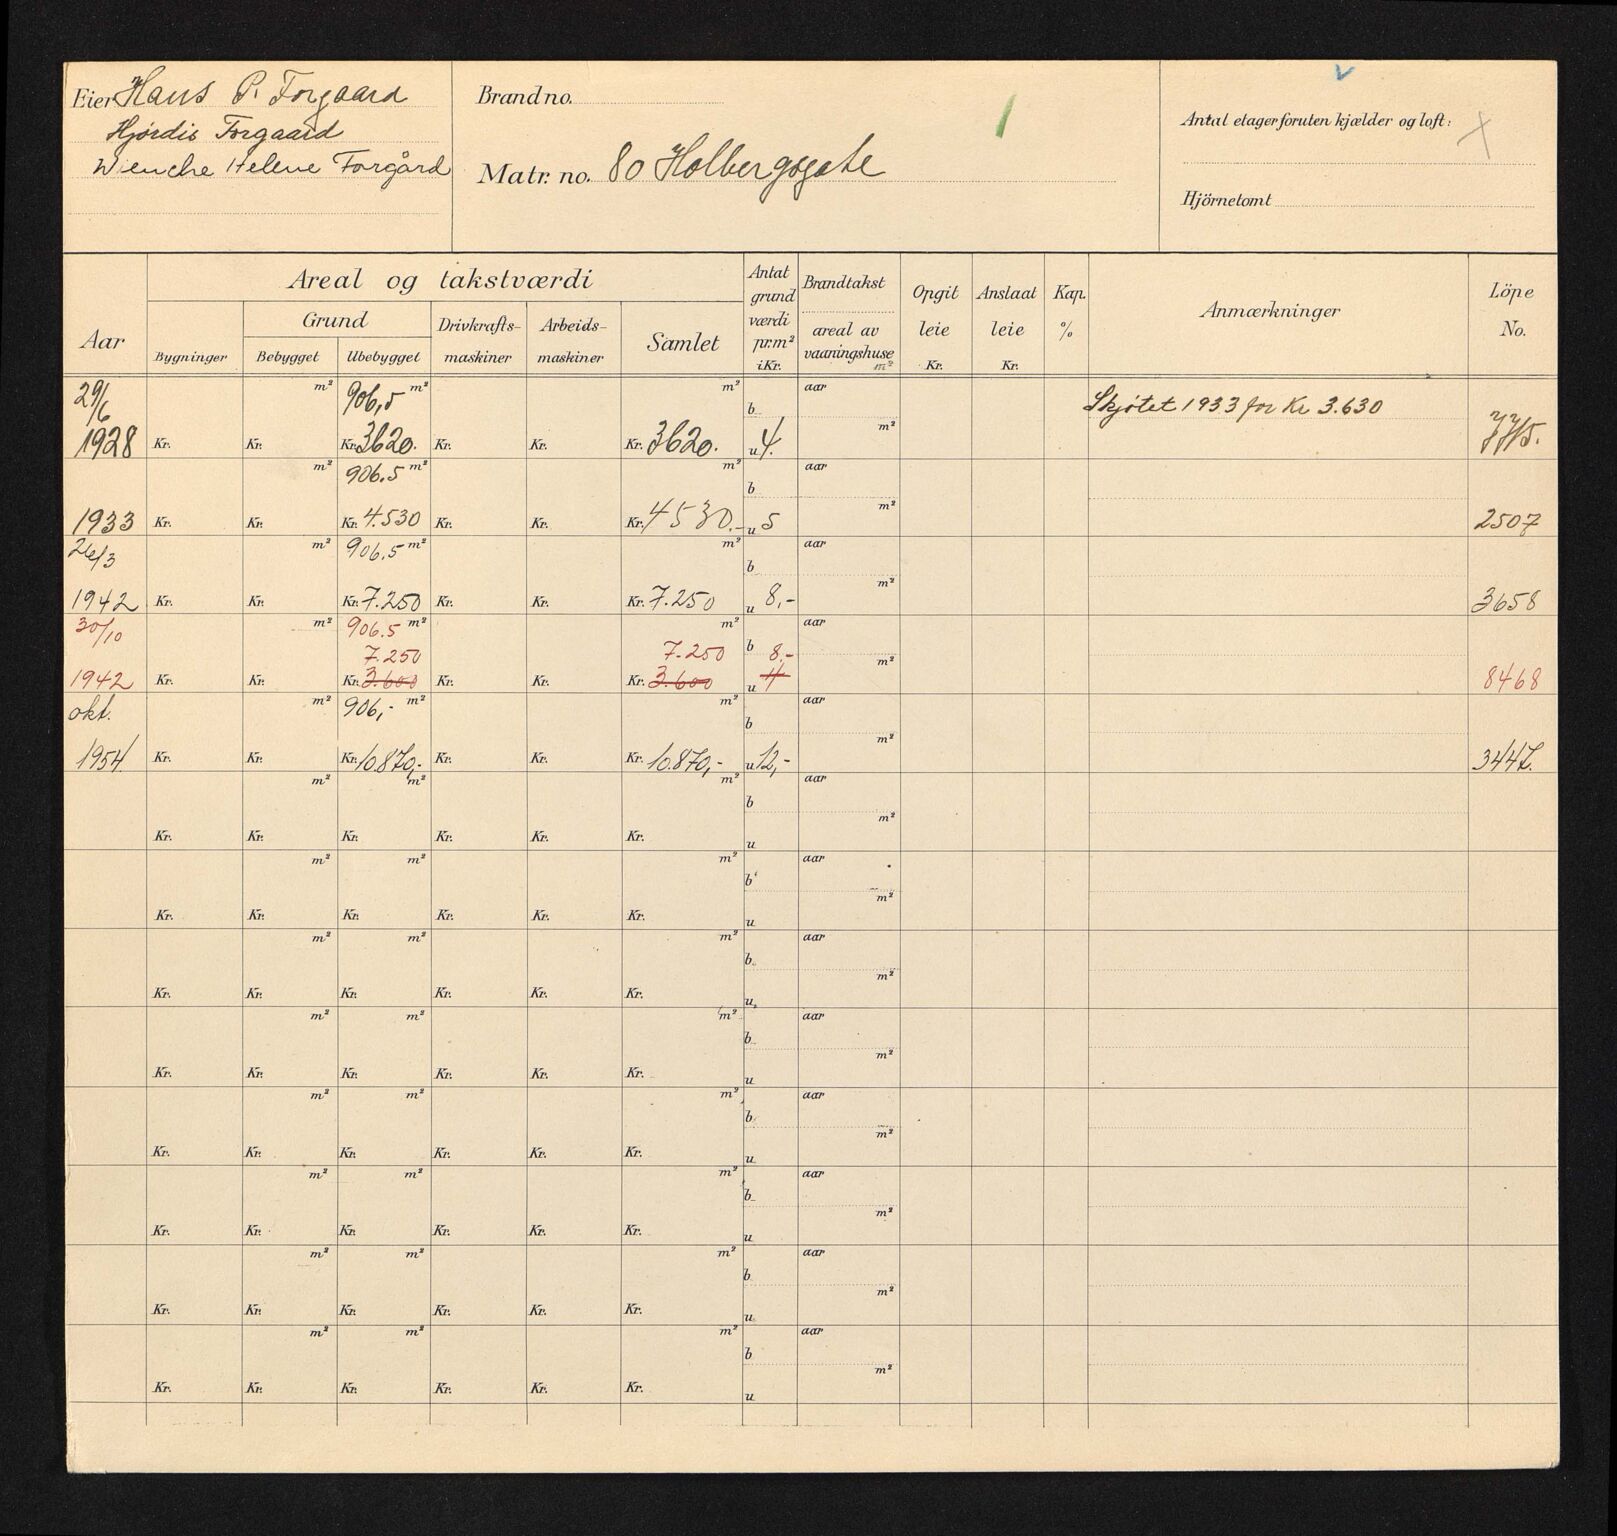 Eier Hans P. Forgaard
Hjørdis Forgaard
Wenche Helene Forgård
Brandno.
Matr. no. 80 Holbergsgate
Antal etager foruten kjælder og loft:
Hjörnetomt
Aar
Areal og takstværdi
Grund
Bygninger
Bebygget
Ubebygget
Drivkrafts-
maskiner
Arbeids-
maskiner
Samlet
Antat
grund
værdi
pr.m²
i Kr.
Brandtakst
areal av
vaaningshuse
m²
Opgit
leie
Kr.
Anslaat
leie
Kr.
Kap.
%
Anmærkninger
Löpe
No.
29/6 m² 906,5 m² m² b aar Skjøtet 1933 for Kr 3.630
1928 Kr. Kr. Kr. 3620. Kr. Kr. Kr. 3620. u 4. m²
m² 906.5 m² m² b aar
1933 Kr. Kr. Kr. 4.530 Kr. Kr. Kr. 4530.- u 5 m² 2507
26/3 m² 906.5 m² m² b aar
1942 Kr. Kr. Kr. 7.250 Kr. Kr. Kr. 7.250 u 8,- m² 3658
30/10 m² 906.5 m² m² aar
7.250 7.250 b 8.- m²
1942 Kr. Kr. Kr. 3.600 Kr. Kr. Kr. 3.600 u 4 8468
okt. m² 906,- m² m² b aar
1954. Kr. Kr. Kr. 10.870,- Kr. Kr. Kr. 10.870,- u 12,- m²
m² m² m² b aar
Kr. Kr. Kr. Kr. Kr. Kr. u m²
m² m² m² b aar
Kr. Kr. Kr. Kr. Kr. Kr. u m²
m² m² m² b aar
Kr. Kr. Kr. Kr. Kr. Kr. u m²
m² m² m² b aar
Kr. Kr. Kr. Kr. Kr. Kr. u m²
m² m² m² b aar
Kr. Kr. Kr. Kr. Kr. Kr. u m²
m² m² m² b aar
Kr. Kr. Kr. Kr. Kr. Kr. u m²
m² m² m² b aar
Kr. Kr. Kr. Kr. Kr. Kr. u m²
m² m² m² b aar
Kr. Kr. Kr. Kr. Kr. Kr. u m²